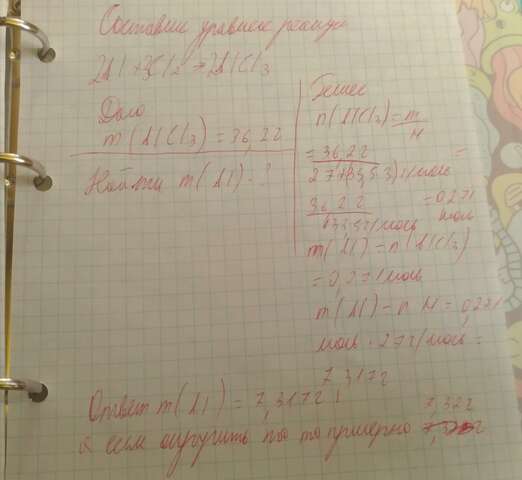 Составим уравнение реакции
2Al+3Cl2→2AlCl3
Дано
m(AlCl3)=36,2г
Найти m(Al)-?
Решение
n(AlCl3)=m/M
=36,2г
27+(35,5·3)г/моль =
36,2г =0,271
133,5г/моль моль
m(Al)=n(AlCl3)
=0,271моль
m(Al)=n M=0,271
моль·27г/моль=
7,317г
Ответ m(Al)=7,317г
а если округлить то то примерно 7,32г